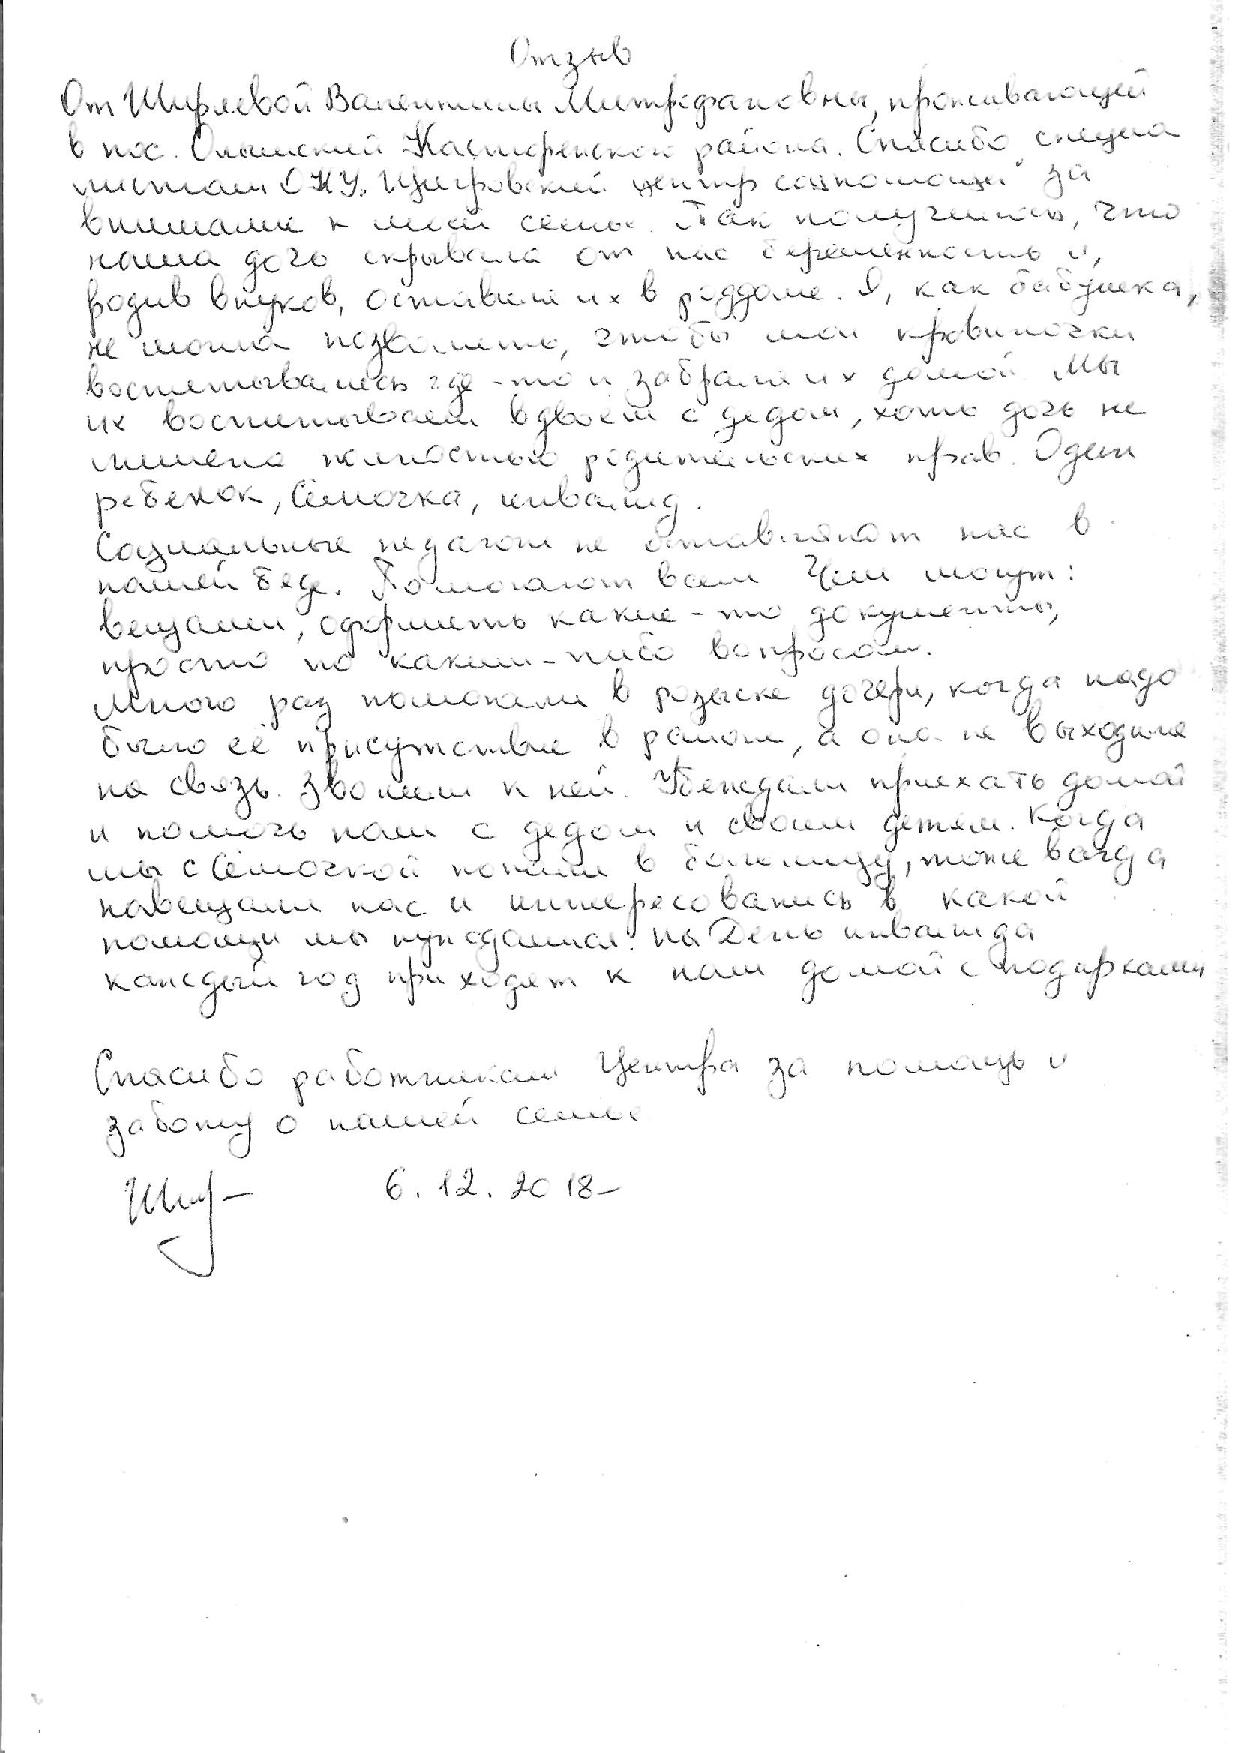 Отзыв
От Ширяевой Валентины Митрофановны, проживающей
в пос. Олымский Касторенского района. Спасибо специа
листам ОКУ "Щигровский центр соцпомощи" за
внимание к моей семье. Так получилось, что
наша дочь скрывала от нас беременность и,
родив внуков, оставила их в роддоме. Я, как бабушка,
не могла позволить, чтобы мои кровиночки
воспитывались где-то и забрали их домой. Мы
их воспитываем вдвоём с дедом, хоть дочь не
лишена полностью родительских прав. Один
ребёнок, Сёмочка, инвалид.
Социальные педагоги не оставляют нас в
нашей беде. Помогают всем чем могут:
вещами, оформить какие-то документы,
просто по каким-либо вопросам.
Много раз помогали в розыске дочери, когда надо
было её присутствие в районе, а она не выходила
на связь. Звонили к ней. Убеждали приехать домой
и помочь нам с дедом и своим детям. Когда
мы с Сёмочкой попали в больницу, тоже всегда
навещали нас и интересовались в какой
помощи мы нуждаемся. На День инвалида
каждый год приходят к нам домой с подарками
Спасибо работникам Центра за помощь и
заботу о нашей семье
6.12.2018